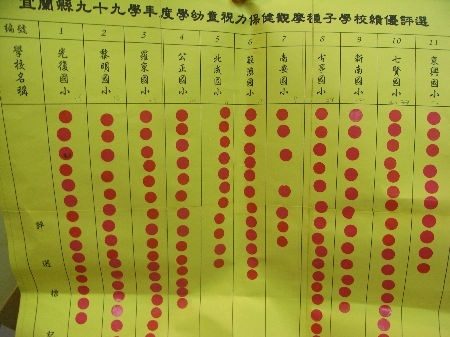 宜蘭縣九十九學年度學幼童視力保健觀摩種子學校績優評選
編號 1 2 3 4 5 6 7 8 9 10 11
學校名稱 光復國小 黎明國小 羅東國小 公正國小 北成國小 國小 南安國小 古亭國小 新南國小 七賢國小 東興國小
評選標記